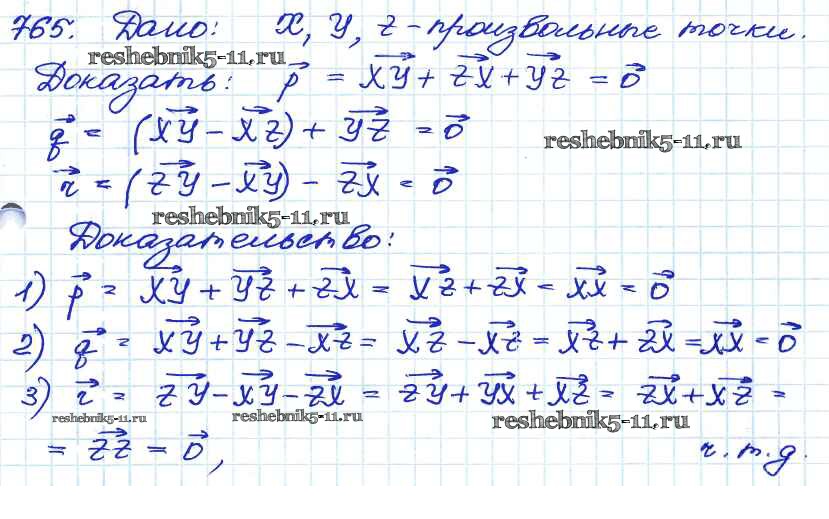 765. Дано: X, Y, Z - произвольные точки.
reshebnik5-11.ru
Доказать: p⃗ = XY⃗ + ZX⃗ + YZ⃗ = 0⃗
q⃗ = (XY⃗ - XZ⃗) + YZ⃗ = 0⃗
reshebnik5-11.ru
r⃗ = (ZY⃗ - XY⃗) - ZX⃗ = 0⃗
reshebnik5-11.ru
Доказательство:
1) p⃗ = XY⃗ + YZ⃗ + ZX⃗ = XZ⃗ + ZX⃗ = XX⃗ = 0⃗
2) q⃗ = XY⃗ + YZ⃗ - XZ⃗ = XZ⃗ - XZ⃗ = XZ⃗ + ZX⃗ = XX⃗ = 0⃗
3) r⃗ = ZY⃗ - XY⃗ - ZX⃗ = ZY⃗ + YX⃗ + XZ⃗ = ZX⃗ + XZ⃗ =
reshebnik5-11.ru reshebnik5-11.ru reshebnik5-11.ru
= ZZ⃗ = 0⃗, ч.т.д.